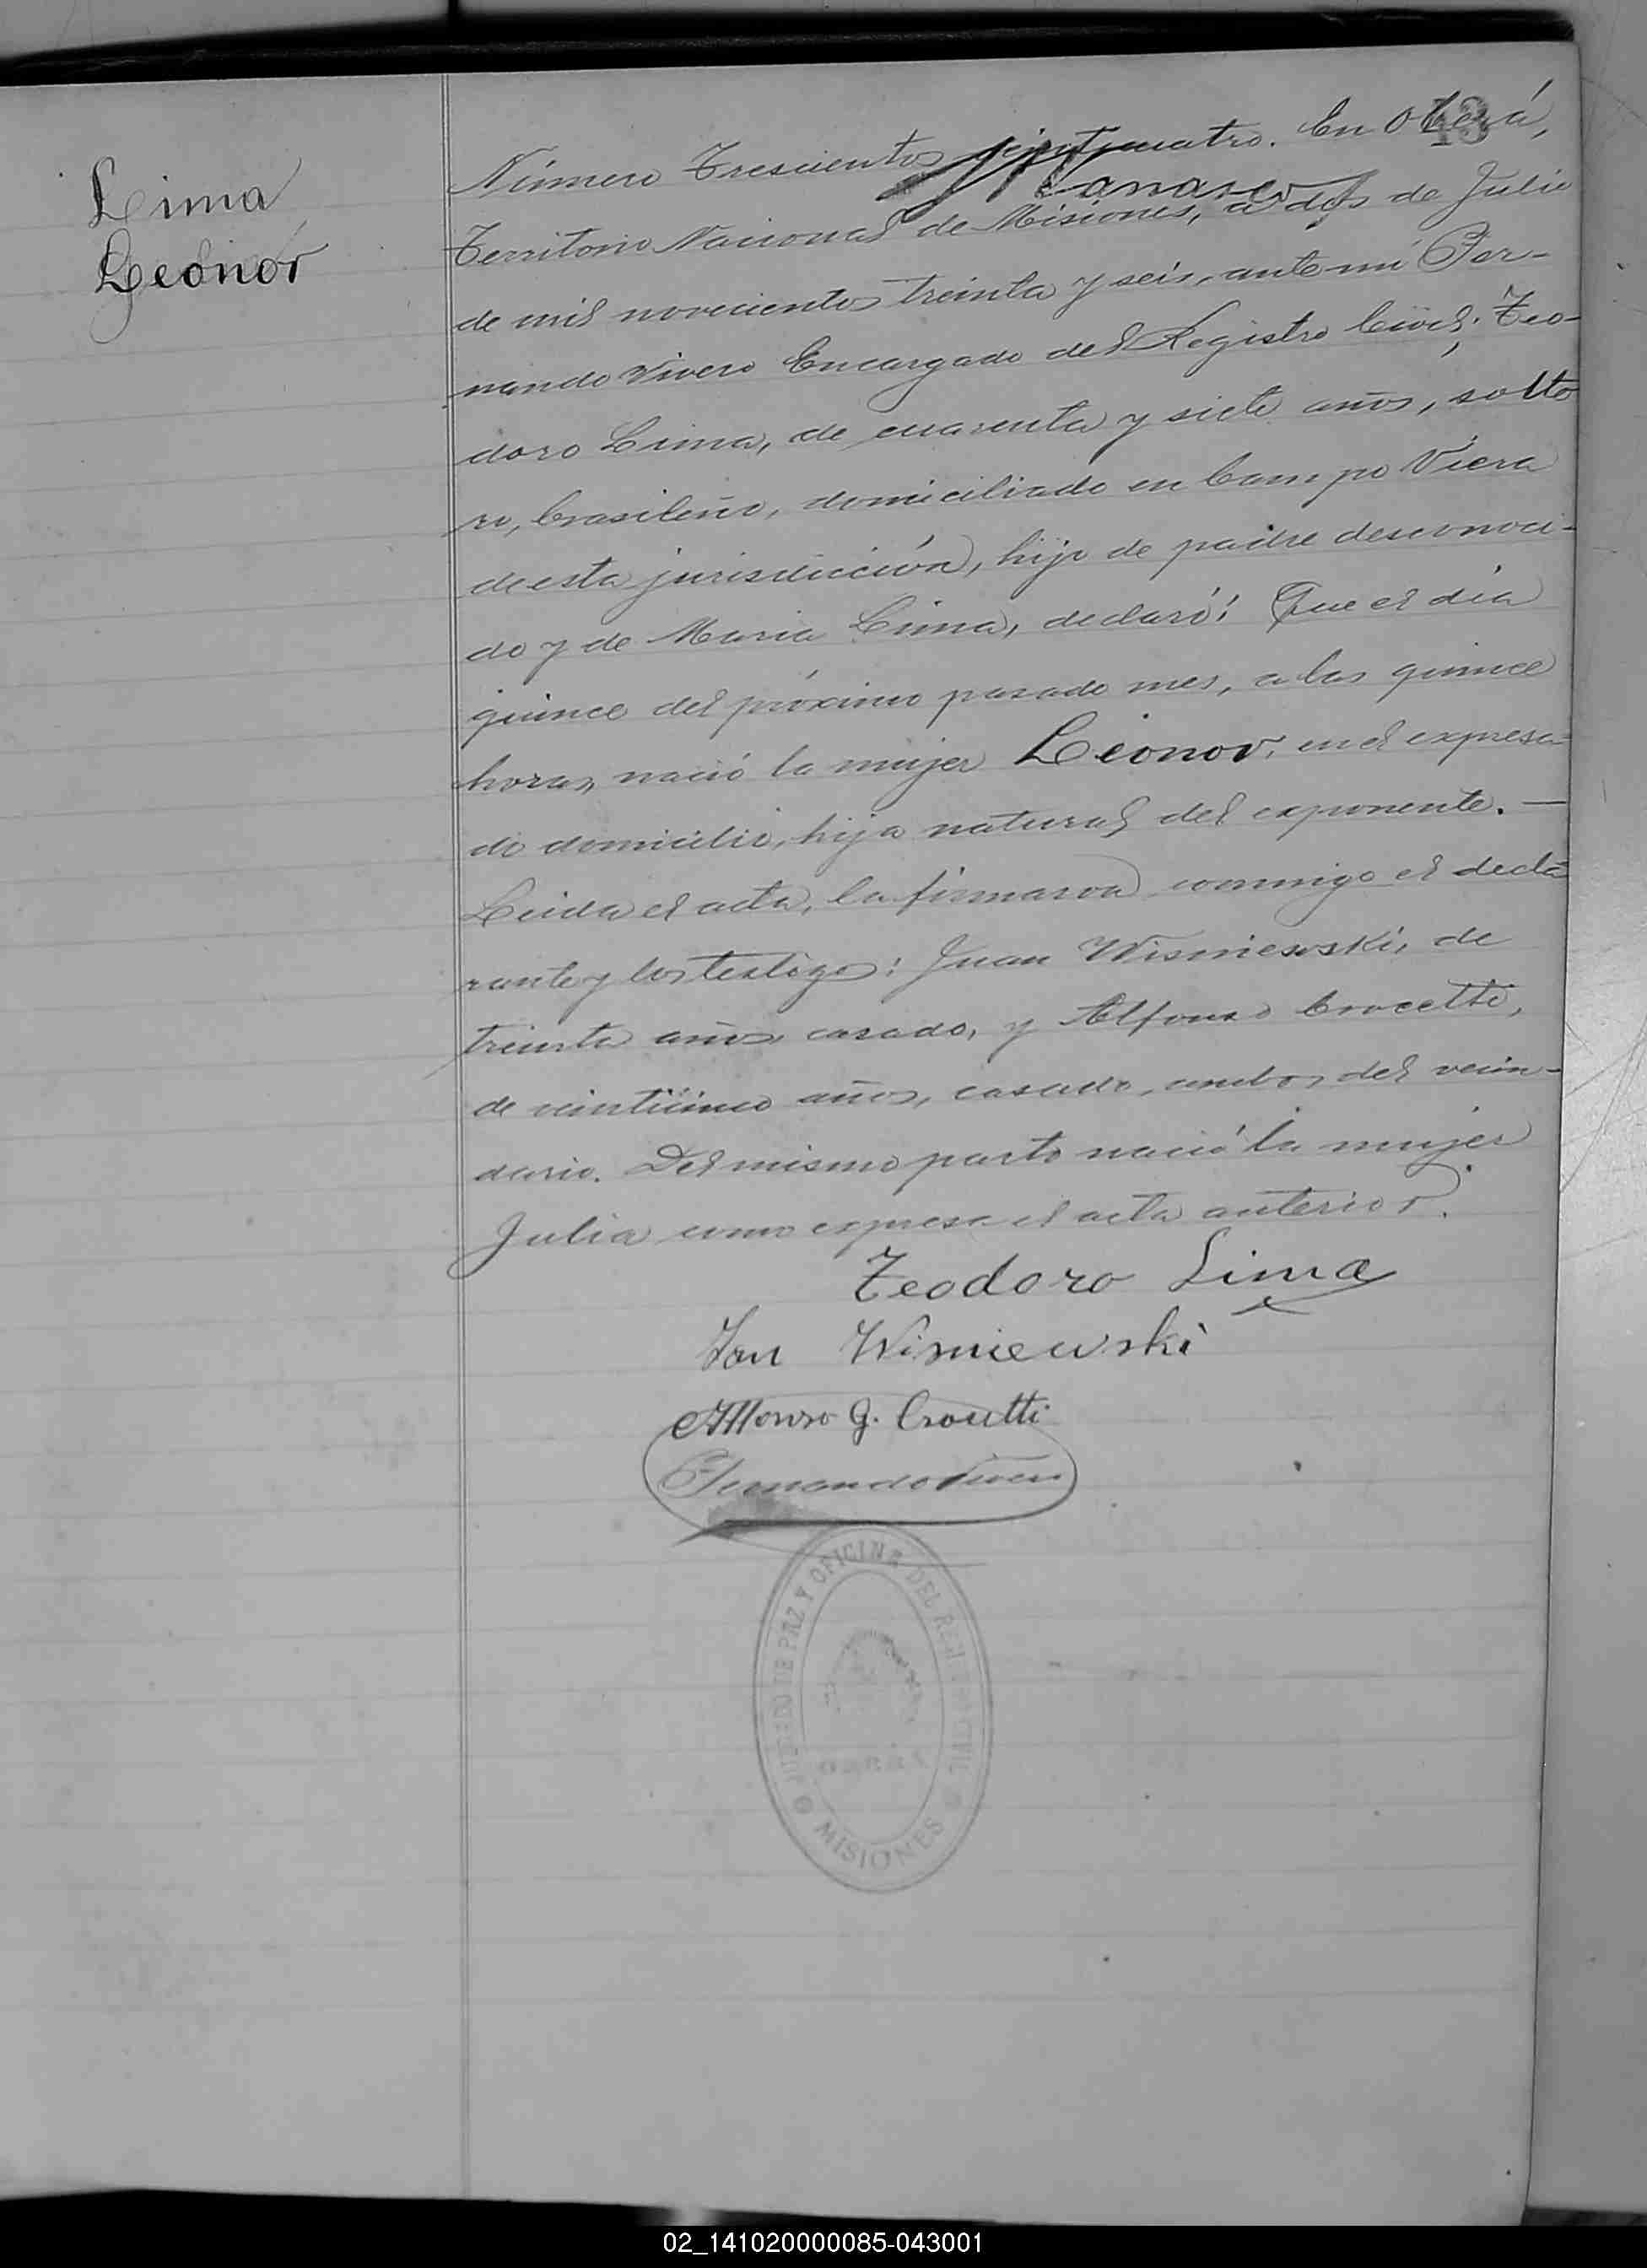 Lima
Leonor
43
Número Trescientos cuatro. En Oberá,
Territorio Nacional de Misiones, a dos de Julio
de mil novecientos treinta y seis, ante mí Fer-
nando Vivero Encargado del Registro Civil; Teo-
doro Lima, de cuarenta y siete años, solte
ro, brasileño, domiciliado en Campo Viera
de esta jurisdicción, hijo de padre desconoci-
do y de Maria Lima, declaró: Que el día
quince del próximo pasado mes, a las quince
horas, nació la mujer Leonor, en el expresa-
do domicilio, hija natural del exponente. —
Leida el acta, la firmaron conmigo el decla-
rante y los testigos: Juan Wisniewski, de
treinta años, casado, y Alfonso Crocetti,
de veinticinco años, casado, ambos del vecin-
dario. Del mismo parto nació la mujer
Julia como expresa el acta anterior.
Teodoro Lima
Jan Wisniewski
Alfonso G. Crocetti
Fernando Vivero
JUZGADO DE PAZ Y OFICINA DEL REGISTRO CIVIL
OBERÁ
MISIONES
02_141020000085-043001